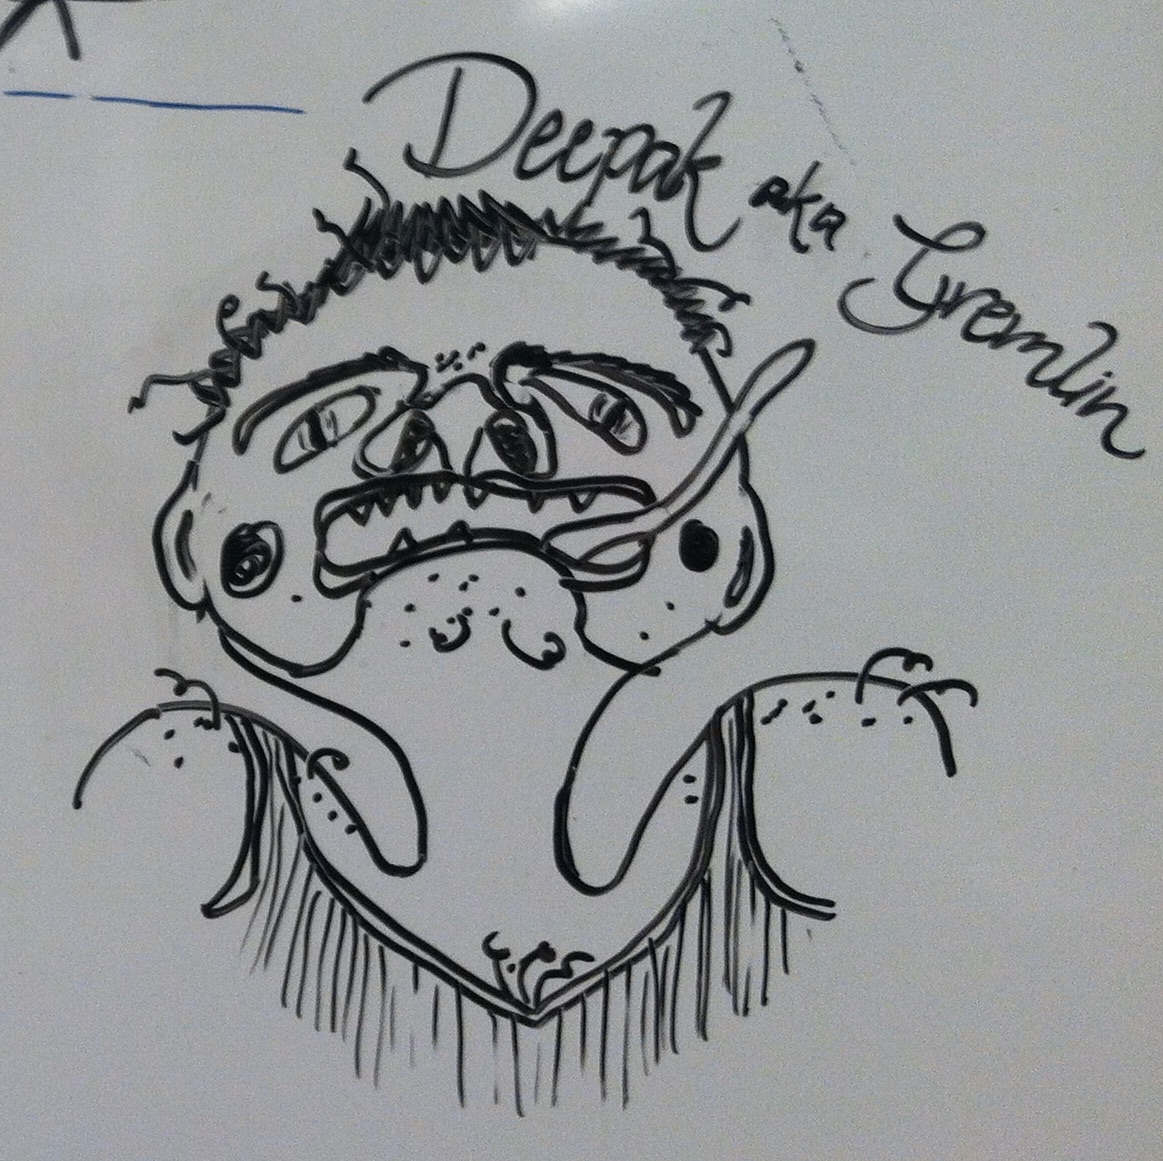 Deepak aka Gremlin